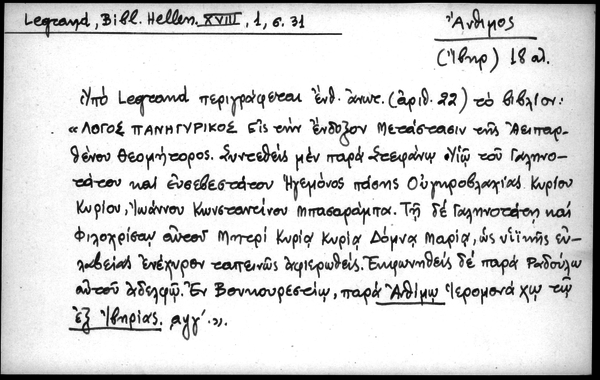 Legrand, Bibl. Hellen. XVIII, 1, σ. 31
Ἄνθιμος
(Ἴβηρ) 18 αἰ.
Ὑπὸ Legrand περιγράφεται ἔνθ. ἀνωτ. (ἀριθ. 22) τὸ βιβλίον:
«ΛΟΓΟΣ ΠΑΝΗΓΥΡΙΚΟΣ Εἰς τὴν ἔνδοξον Μετάστασιν τῆς Ἀειπαρ-
θένου Θεομήτορος. Συντεθεὶς μὲν παρὰ Στεφάνῳ Υἱῷ τοῦ Γαληνο-
τάτου καὶ εὐσεβεστάτου Ἡγεμόνος πάσης Οὑγκροβλαχίας Κυρίου
Κυρίου, Ἰωάννου Κωνσταντίνου Μπασαράμπα. Τῇ δὲ Γαληνοτάτῃ καὶ
Φιλοχρίστῳ αὐτοῦ Μητρὶ Κυρίᾳ Κυρίᾳ Δόμνᾳ Μαρίᾳ, ὡς υἱϊκῆς εὐ-
λαβείας ἐνέχυρον ταπεινῶς ἀφιερωθείς. Ἐκφωνηθεὶς δὲ παρὰ Ῥαδούλῳ
αὐτοῦ ἀδελφῷ. Ἐν Βουκουρεστίῳ, παρὰ Ἀνθίμῳ Ἱερομονάχῳ τῷ
ἐξ Ἰβηρίας. αψγ΄.».